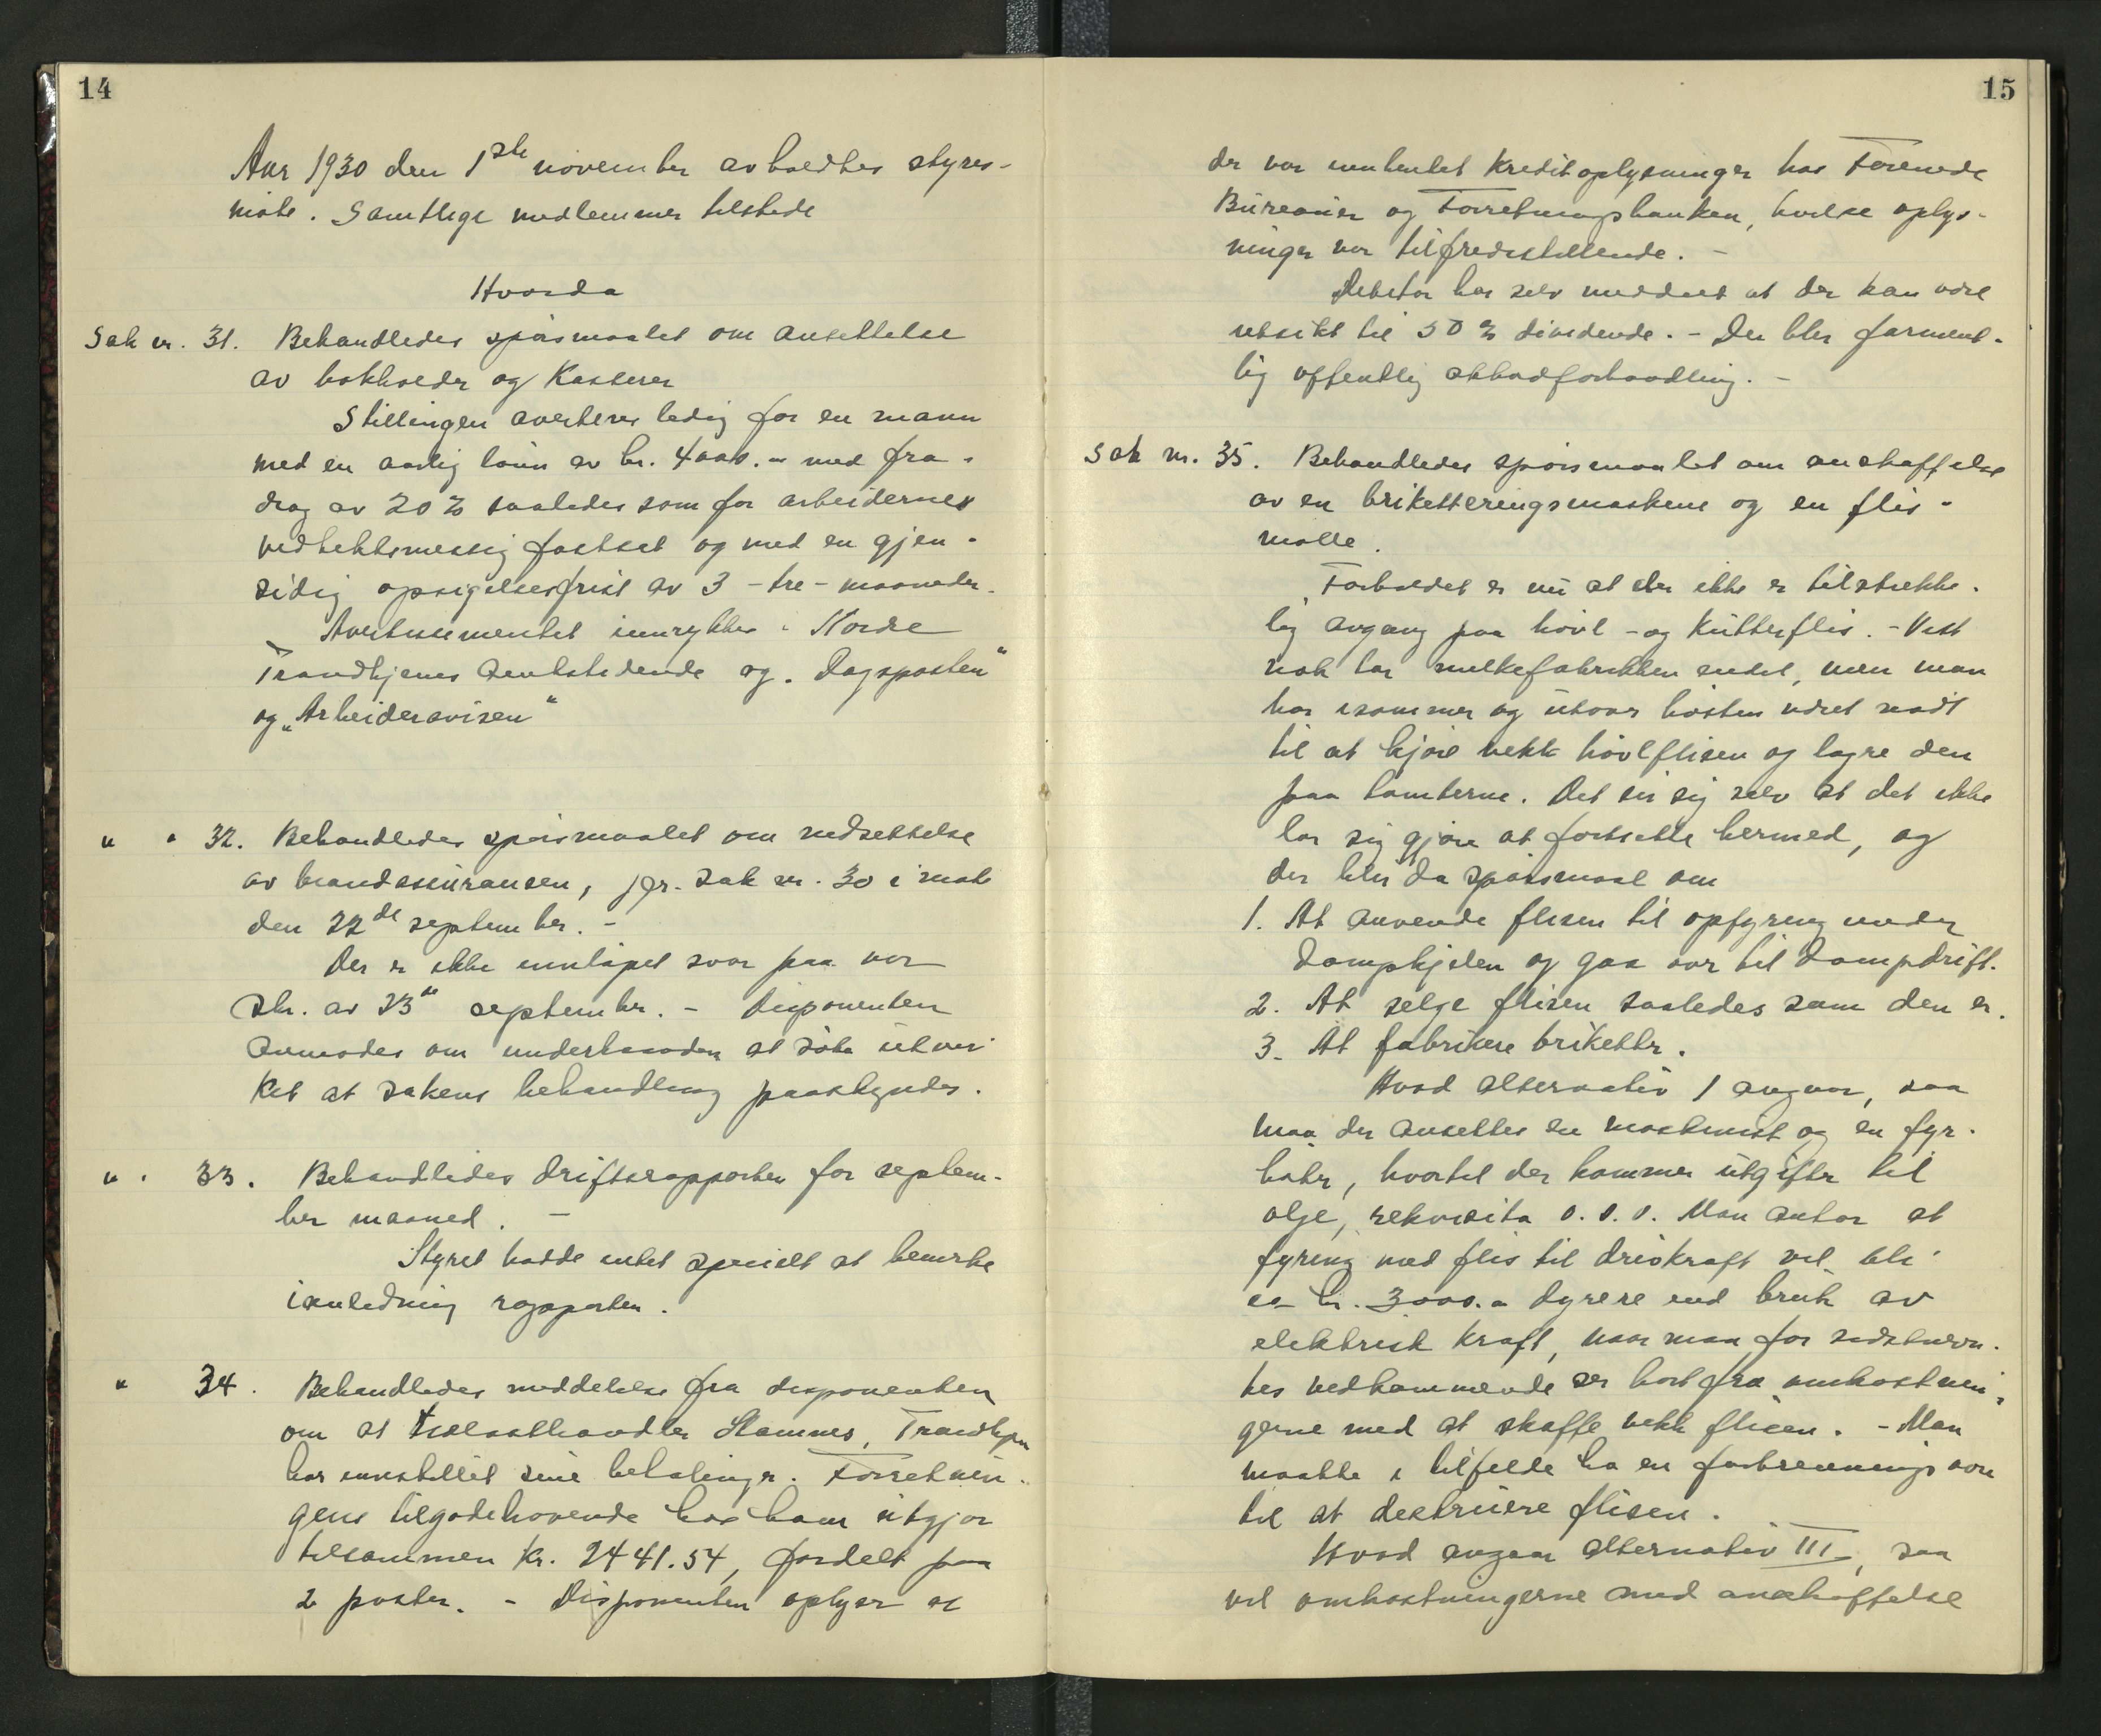 14
Aar 1930 den 1ste november avholdtes styres-
møte. Samtlige medlemmer tilstede
Hvorda
Sak nr. 31. Behandledes spørsmaalet om ansettelse
av bokholder og Kasserer
Stillingen averteres ledig for en mann
med en aarlig lønn av kr. 4000.- med fra-
drag av 20 % saaledes som for arbeidernes
vedtektsmessig fastsat og med en gjen-
sidig opsigelsesfrist av 3 - tre - maaneder.
Avertissementet innrykkes i Nordre
Trondhjems Amtstidende og „Dagsposten“
og „Arbeideravisen“
" " 32. Behandledes spørsmaalet om nedsettelse
av brandassuransen, jfr. sak nr. 30 i møte
den 22de september. -
Der er ikke innløpet svar paa vor
skr. av 23de september. - Disponenten
anmodes om underhaanden at søke utvir-
ket at sakens behandling paaskyndes.
" " 33. Behandledes driftsrapporten for septem-
ber maaned. -
Styret hadde intet specielt at bemerke
i anledning rapporten.
" 34. Behandledes meddelelse fra disponenten
om at trelasthandler Stamnes, Trondhjem
har innstillet sine betalinger. Forretnin-
gens tilgodehavende hos ham utgjør
tilsammen kr. 2441.54, fordelt paa
2 poster. - Disponenten oplyser at
15
der var innhentet kreditoplysninger hos Forenede
Bureauer og Forretningsbanken, hvilke oplys-
ninger var tilfredsstillende. -
Debitor har selv meddelt at der kan være
utsikt til 50 % dividende. - Der blir forment-
lig offentlig akkordforhandling. -
Sak nr. 35. Behandledes spørsmaalet om anskaffelse
av en briketteringsmaskine og en flis-
mølle.
Forholdet er nu at der ikke er tilstrekke-
lig avgang paa høvl- og kutterflis. - Vist
nok tar melkefabrikken endel, men man
har isommer og utover høsten været nødt
til at kjøre vekk høvlflisen og lagre den
paa tomterne. Det sier sig selv at det ikke
lar sig gjøre at fortsette hermed, og
der blir da spørsmaal om
1. At anvende flisen til opfyring under
dampkjelen og gaa over til dampdrift.
2. At selge flisen saaledes som den er.
3. At fabrikere briketter.
Hvad alternativ 1 angaar, saa
maa der ansettes en maskinist og en fyr-
bøter, hvortil der kommer utgifter til
olje, rekvisita o.s.v. Man antar at
fyring med flis til drivkraft vil bli
ca kr. 3000.- dyrere end bruk av
elektrisk kraft, naar man for sidstnevn-
tes vedkommende ser bort fra omkostnin-
gerne med at skaffe vekk flisen. - Man
maatte i tilfelde ha en forbrenningsovn
til at destruere flisen.
Hvad angaar alternativ III, saa
vil omkostningerne med anskaffelse